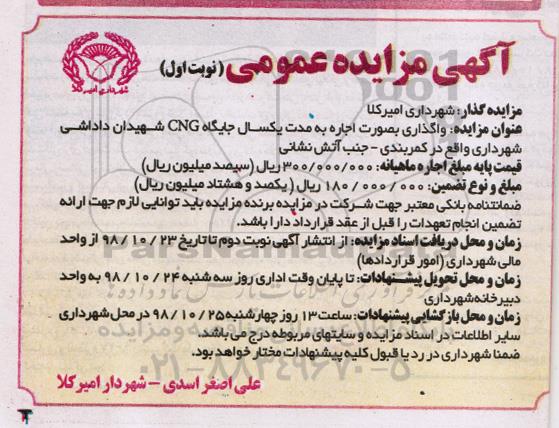 آگهی مزایده عمومی (نوبت اول)
شهرداری امیرکلا
مزایده گذار: شهرداری امیرکلا
عنوان مزایده: واگذاری بصورت اجاره به مدت یکسال جایگاه CNG شهیدان داداشی
شهرداری واقع در کمربندی - جنب آتش نشانی
قیمت پایه مبلغ اجاره ماهیانه: ۳۰۰/۰۰۰/۰۰۰ ریال (سیصد میلیون ریال)
مبلغ و نوع تضمین: ۱۸۰/۰۰۰/۰۰۰ ریال (یکصد و هشتاد میلیون ریال)
ضمانتنامه بانکی معتبر جهت شرکت در مزایده برنده مزایده باید توانایی لازم جهت ارائه
تضمین انجام تعهدات را قبل از عقد قرارداد دارا باشد.
زمان و محل دریافت اسناد مزایده: از انتشار آگهی نوبت دوم تا تاریخ ۹۸/۱۰/۲۳ از واحد
مالی شهرداری (امور قراردادها)
زمان و محل تحویل پیشنهادات: تا پایان وقت اداری روز سه شنبه ۹۸/۱۰/۲۴ به واحد
دبیرخانه شهرداری
زمان و محل بازگشایی پیشنهادات: ساعت ۱۳ روز چهارشنبه ۹۸/۱۰/۲۵ در محل شهرداری
سایر اطلاعات در اسناد مزایده و سایتهای مربوطه درج می باشد.
ضمنا شهرداری در رد یا قبول کلیه پیشنهادات مختار خواهد بود.
علی اصغر اسدی - شهردار امیرکلا
۰۲۱-۸۸۳۴۹۶۷۰-۵